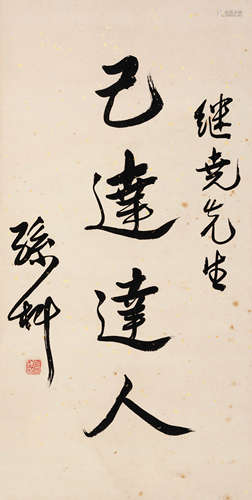 继尧先生
己達達人
孫科